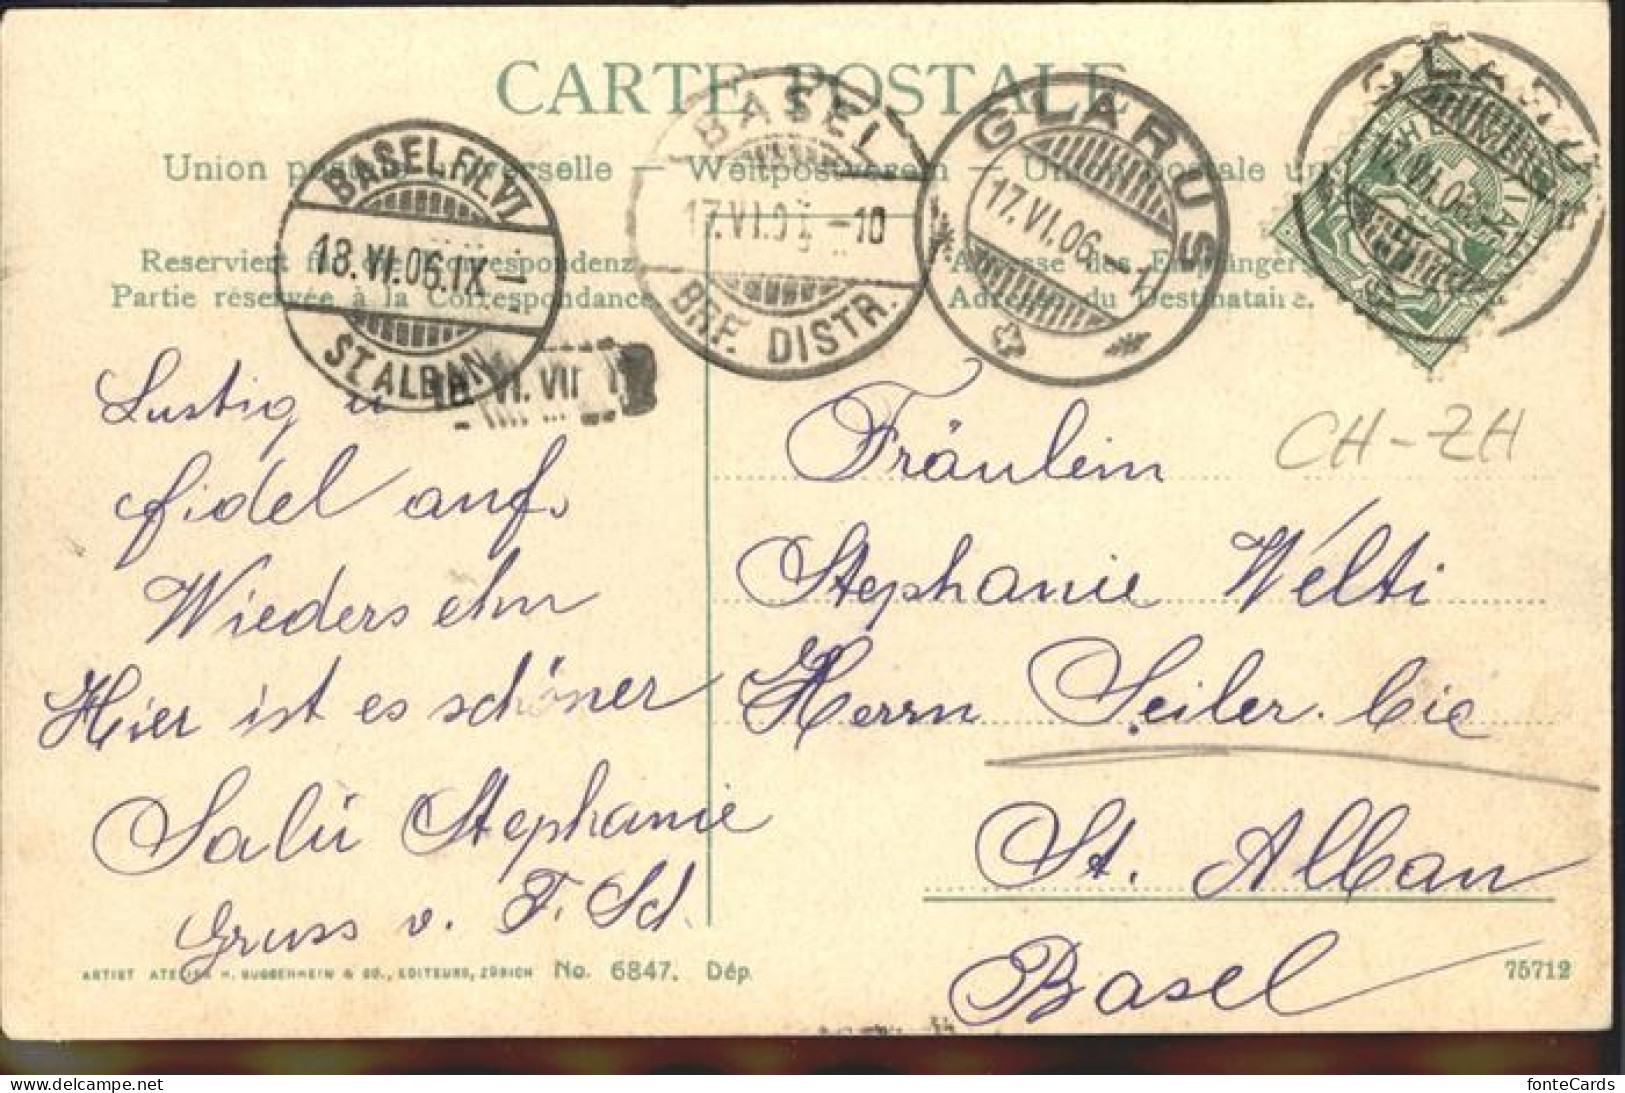 CARTE POSTALE
Union postale universelle — Weltpostverein — Unione postale un
Reserviert für die Correspondenz
Partie réservée à la Correspondance
Adresse des Empfängers
Adresse du Destinataire.
BASEL FIL. VI
18.VI.06.IX —
ST. ALBAN
18. VI. VII
BASEL
17.VI.0 –10
BRF. DISTR.
GLARUS
17.VI.06.
GLARUS
HELVETIA
17.VI.06.
CH-ZH
Lustig u
fidel auf.
Wiedersehn
Hier ist es schöner
Salü Stephanie
Gruss v. F. Sch.
Fräulein
Stephanie Welti
Herrn Seiler. Cie
St. Alban
Basel
ARTIST ATELIER H. GUGGENHEIM & CO., EDITEURS, ZÜRICH No. 6847. Dép.
75712
https://www.delcampe.net
fonteCards